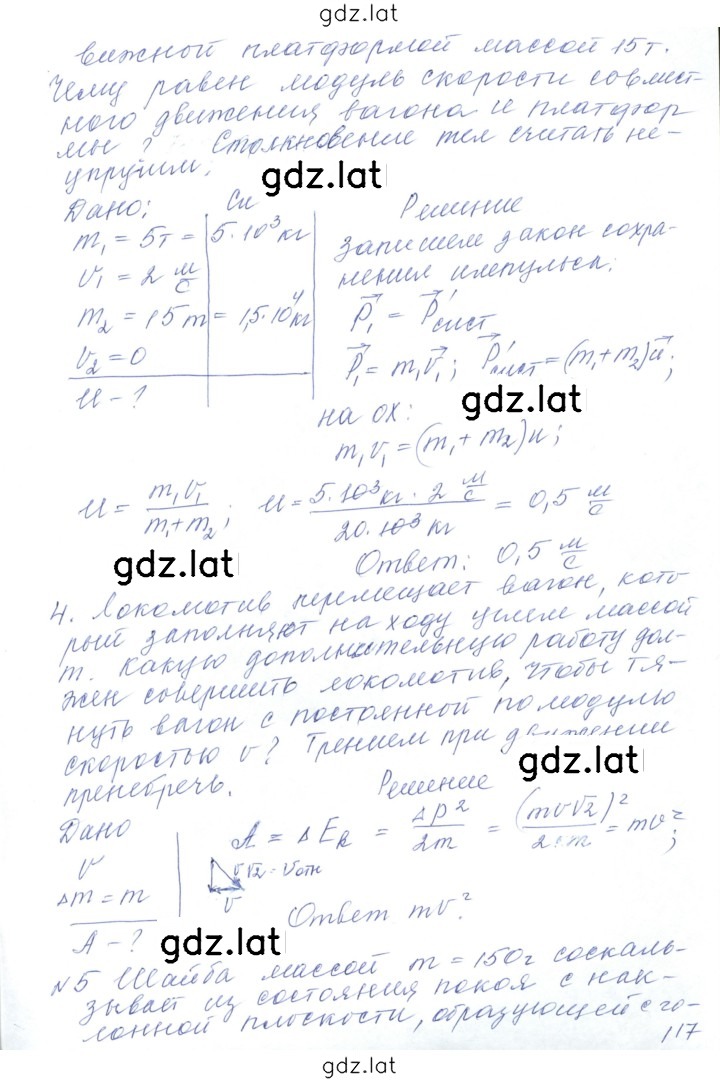 gdz.lat
вижной платформой массой 15т.
Чему равен модуль скорости совмест-
ного движения вагона и платфор
мы? Столкновение тел считать не-
упругим.
gdz.lat
Дано: Си Решение
m₁ = 5т = 5·10³кг Запишем закон сохра-
v₁ = 2 м/с нения импульса:
m₂ = 15т = 1,5·10⁴кг P⃗₁ = P⃗'сист
v₂ = 0 P⃗₁ = m₁v⃗₁; P⃗'сист = (m₁+m₂)u⃗;
u - ? gdz.lat
на ох:
m₁v₁ = (m₁+m₂)u;
u = m₁v₁/(m₁+m₂); u = 5·10³кг·2 м/с / 20·10³кг = 0,5 м/с
gdz.lat Ответ: 0,5 м/с
4. Локомотив перемещает вагон, кото-
рый заполняют на ходу углем массой
m. Какую дополнительную работу дол-
жен совершить локомотив, чтобы тя-
нуть вагон с постоянной по модулю
скоростью v? Трением при движении
пренебречь. gdz.lat
Решение
Дано A = ΔEк = Δp²/2m = (mv√2)²/2·m = mv²;
v
Δm = m v√2 = vотн
v
A - ? Ответ mv².
gdz.lat
№5 Шайба массой m = 150г соскаль-
зывает из состояния покоя с нак-
лонной плоскости, образующей с го-
117
gdz.lat